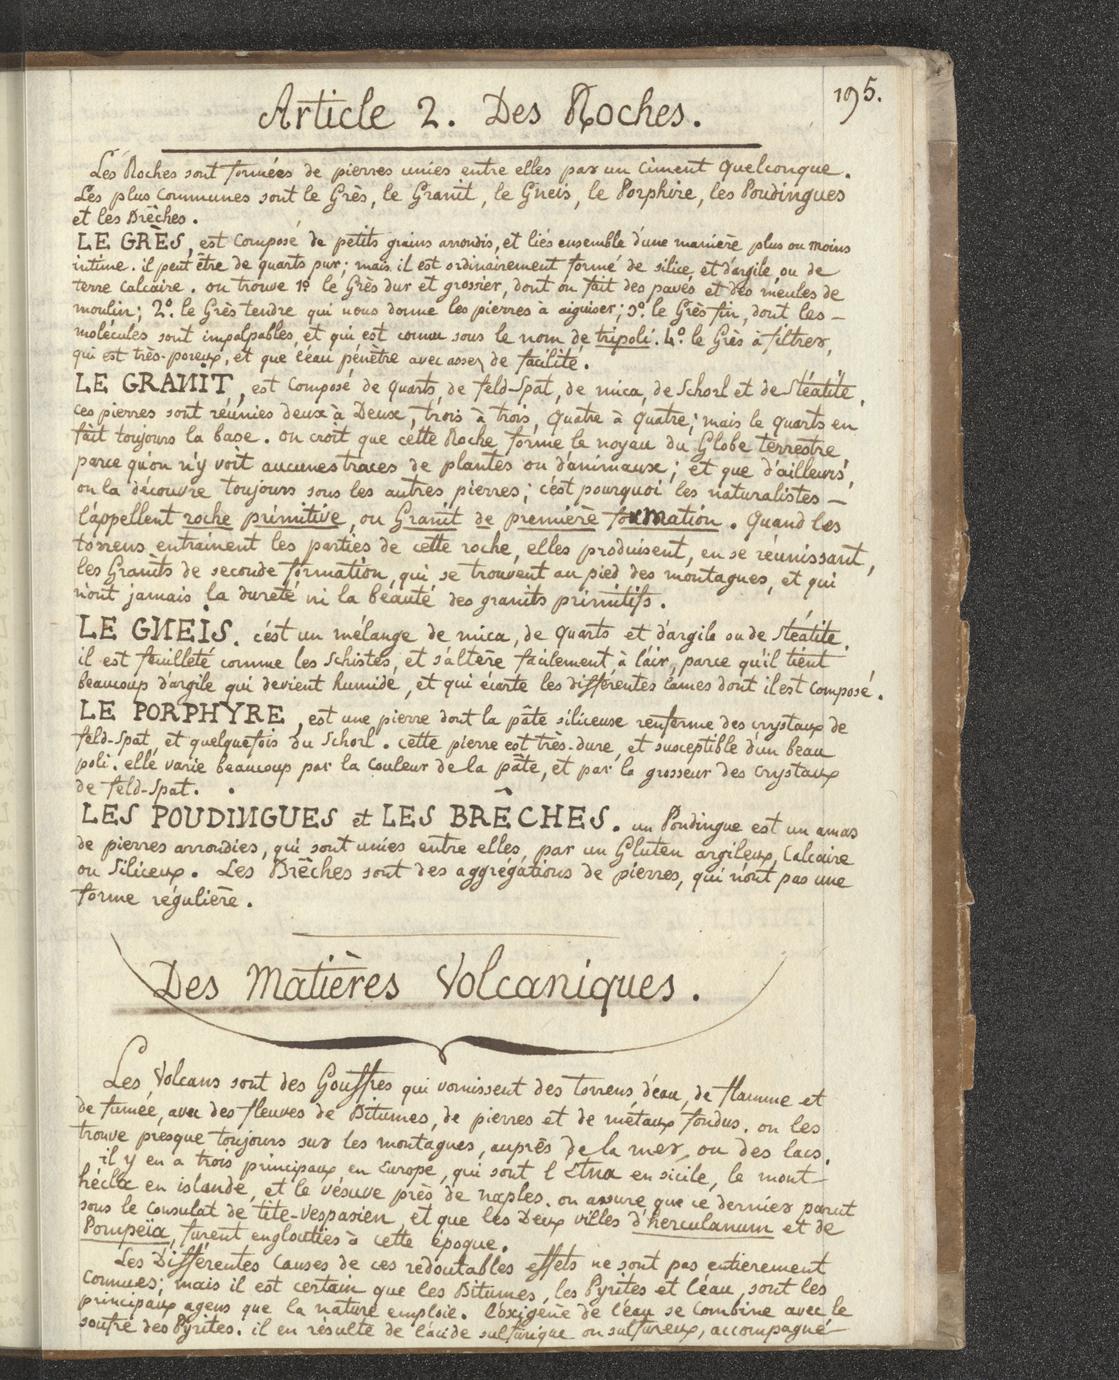 195.
Article 2. Des Roches.
Les Roches sont formées de pierres unies entre elles par un Ciment Quelconque.
Les plus Communes sont le Grès, le Granit, le Gneis, le Porphire, les Poudingues
et les Brêches.
LE GRÈS, est Composé de petits grains arrondis, et liés ensemble d'une manière plus ou moins
intime. il peut être de quarts pur; mais il est ordinairement formé de silice, et d'argile ou de
terre Calcaire. on trouve 1º. le Grès dur et grossier, dont on fait des pavés et des meules de
moulin; 2º. le Grès tendre qui nous donne les pierres à aiguiser; 3º. le Grès fin, dont les —
molécules sont impalpables, et qui est connu sous le nom de tripoli. 4º. le Grès à filtrer,
qui est très-poreux, et que l'eau pénètre avec assez de facilité.
LE GRANIT, est Composé de Quarts, de feld-Spat, de mica, de Schorl et de Stéatite,
ces pierres sont réunies deux à Deux, trois à trois, Quatre à Quatre; mais le quarts en
fait toujours la base. on croit que cette Roche forme le noyau du Globe terrestre,
parce qu'on n'y voit aucunes traces de plantes ou d'animaux; et que d'ailleurs,
on la découvre toujours sous les autres pierres; c'est pourquoi les naturalistes —
l'appellent roche primitive, ou Granit de première formation. Quand les
torrens entrainent les parties de cette roche, elles produisent, en se réunissant,
les Granits de seconde formation, qui se trouvent au pied des montagnes, et qui
n'ont jamais la dureté ni la beauté des granits primitifs.
LE GNEIS. c'est un mélange de mica, de Quarts et d'argile ou de Stéatite.
il est feuilleté comme les Schistes, et s'altère facilement à l'air, parce qu'il tient
beaucoup d'argile qui devient humide, et qui écarte les différentes lames dont il est composé.
LE PORPHYRE, est une pierre dont la pâte siliceuse renferme des crystaux de
feld-Spat, et quelquefois du Schorl. cette pierre est très-dure, et susceptible d'un beau
poli. elle varie beaucoup par la Couleur de la pâte, et par la grosseur des Crystaux
de feld-Spat.
LES POUDINGUES et LES BRÊCHES. un Poudingue est un amas
de pierres arrondies, qui sont unies entre elles, par un Gluten argileux, Calcaire
ou Siliceux. Les Brêches sont des aggrégations de pierres, qui n'ont pas une
forme régulière.
Des Matières Volcaniques.
Les Volcans sont des Gouffres qui vomissent des torrens d'eau, de flamme et
de fumée, avec des fleuves de Bitumes, de pierres et de métaux fondus. on les
trouve presque toujours sur les montagnes, auprès de la mer, ou des lacs.
il y en a trois principaux en Europe, qui sont l'Etna en sicile, le mont
hécla en islande, et le vésuve près de naples. on assure que ce dernier parut
sous le Consulat de tite-Vespasien, et que les Deux villes d'herculanum et de
Pompeïa, furent englouties à cette époque.
Les Différentes Causes de ces redoutables effets ne sont pas entierement
Connues; mais il est certain que les Bitumes, les Pyrites et l'éau, sont les
principaux agens que la nature emploie. L'oxigène de l'eau se Combine avec le
soufre des Pyrites. il en résulte de l'acide sulfurique ou sulfureux, accompagné